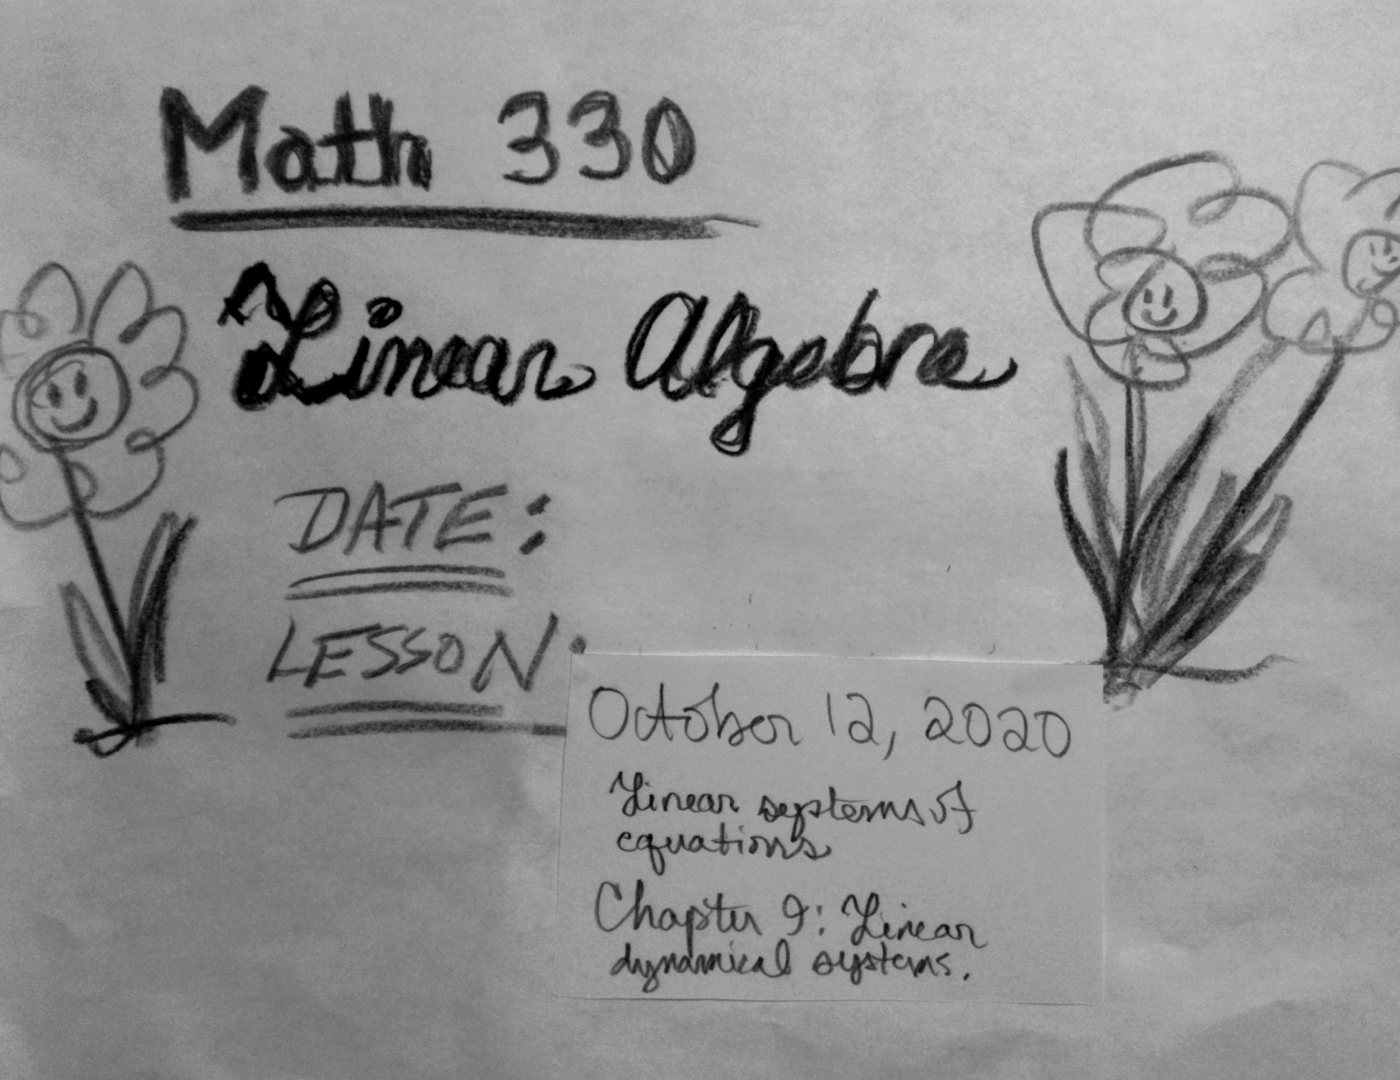 Math 330
Linear Algebra
DATE:
LESSON:
October 12, 2020
Linear systems of
equations
Chapter 9: Linear
dynamical systems.